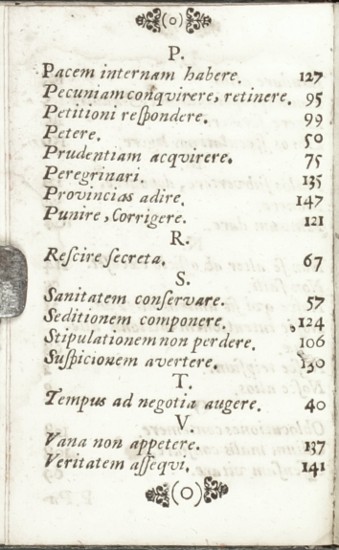 P.
Pacem internam habere. 127
Pecuniam conqvirere, retinere. 95
Petitioni reſpondere. 99
Petere. 50
Prudentiam acqvirere. 75
Peregrinari. 135
Provincias adire. 147
Punire, Corrigere. 121
R.
Reſcire ſecreta. 67
S.
Sanitatem conſervare. 57
Seditionem componere. 124
Stipulationem non perdere. 106
Suſpicionem avertere. 130
T.
Tempus ad negotia augere. 40
V.
Vana non appetere. 137
Veritatem aſſeqvi. 141